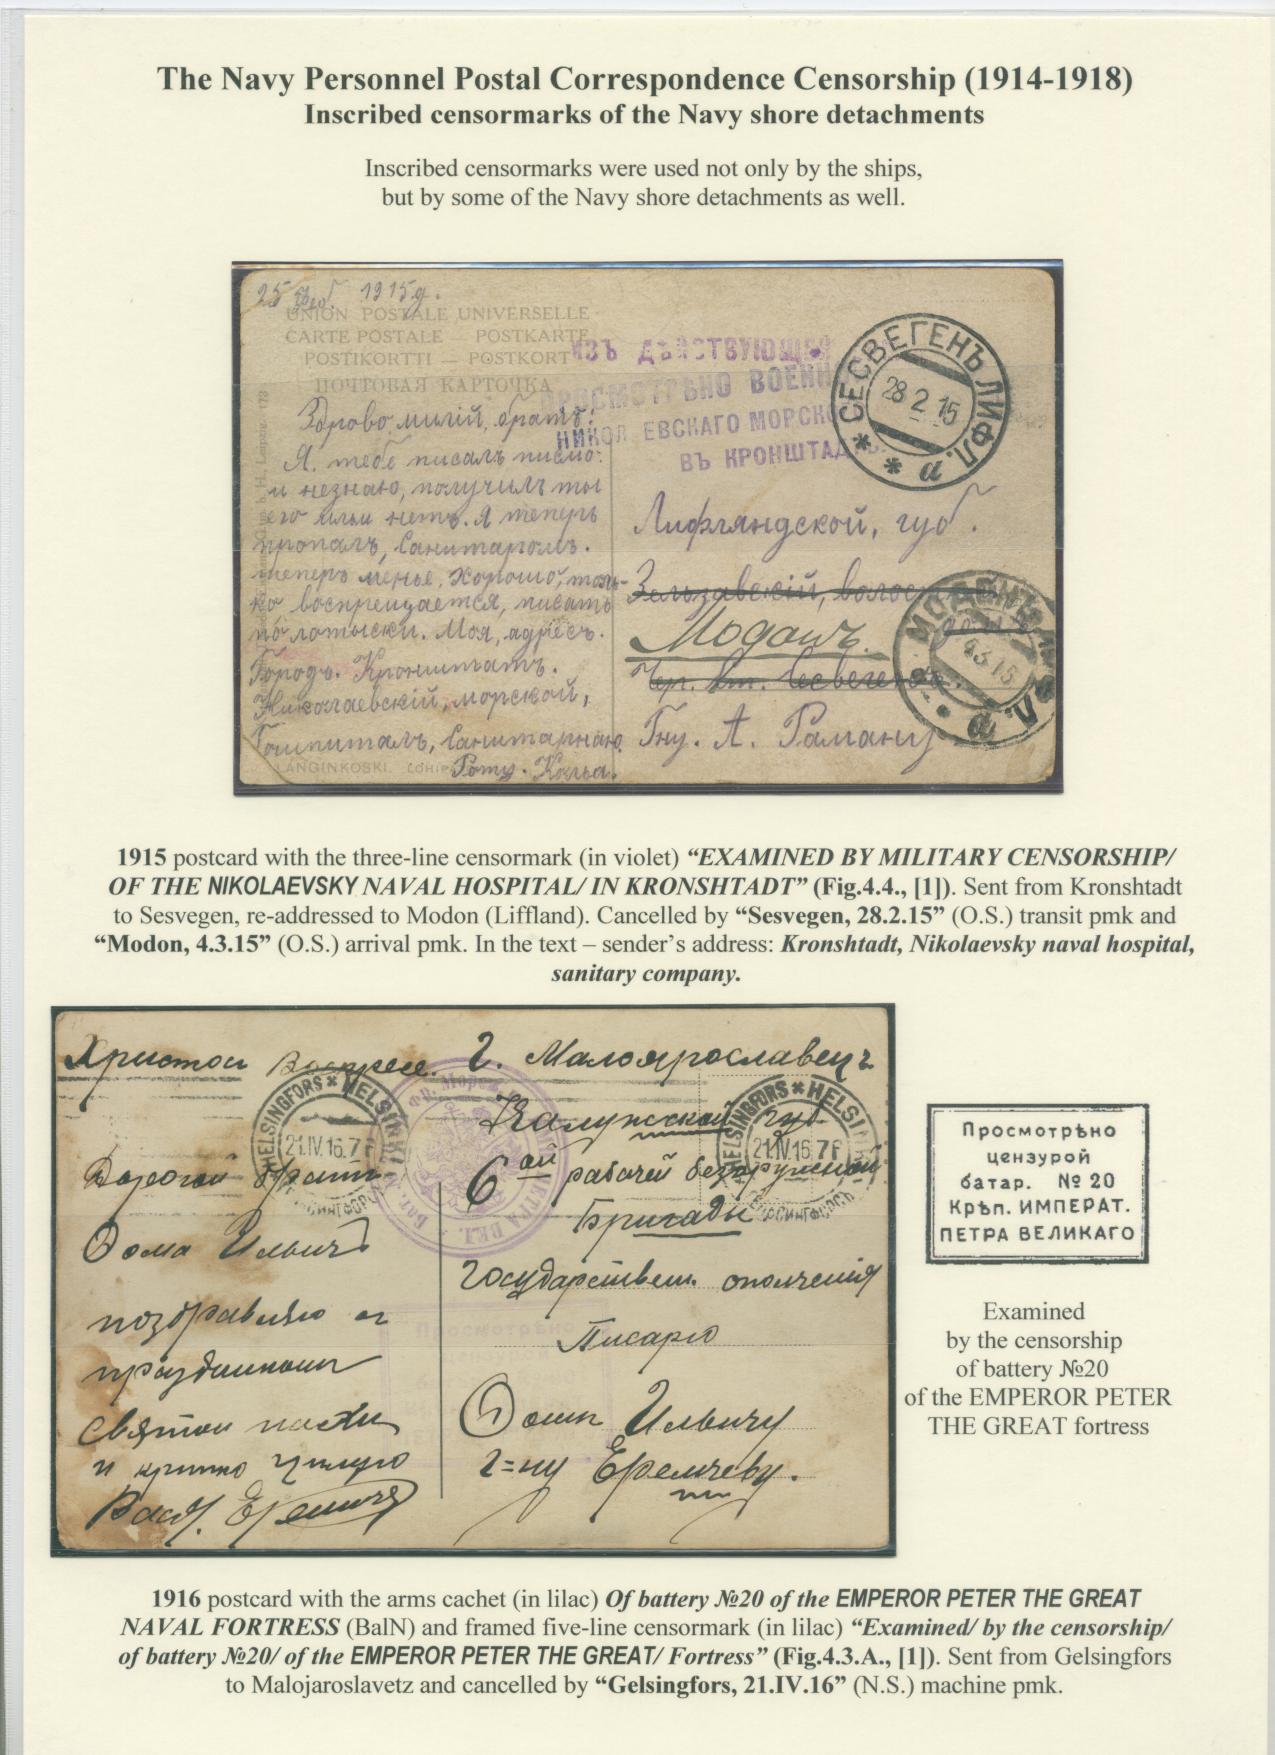 The Navy Personnel Postal Correspondence Censorship (1914-1918)
Inscribed censormarks of the Navy shore detachments
Inscribed censormarks were used not only by the ships,
but by some of the Navy shore detachments as well.
25 1915 г.
UNION POSTALE UNIVERSELLE
CARTE POSTALE — POSTKARTE
POSTIKORTTI — POSTKORT
ПОЧТОВАЯ КАРТОЧКА
ИЗЪ ДѢЙСТВУЮЩЕЙ
ПРОСМОТРѢНО ВОЕНН
НИКОЛАЕВСКАГО МОРСКО
ВЪ КРОНШТАД
СЕСВЕГЕНЪ ЛИФЛ.
28 2 15
а
Здрово, милій, братъ!
Я. тебе писалъ писмо.
и незнаю, получилъ ты
его или нетъ. Я теперь
пропалъ, Санитаромъ.
теперъ менье, хорошо, толь-
ко воспрещается, писать
по латыски. Моя, адресъ.
Городъ. Кронштатъ.
Николаевскій, морской,
Гошпиталъ, Санитарнаю
Роту. Колъа.
LANGINKOSKI.
Лифляндской, губ.
Зельзавскій, волос
Модонъ.
Чер. Сесвегенъ.
Гну. А. Раману
МОДОНЪ
4 3 15
1915 postcard with the three-line censormark (in violet) “EXAMINED BY MILITARY CENSORSHIP/
OF THE NIKOLAEVSKY NAVAL HOSPITAL/ IN KRONSHTADT” (Fig.4.4., [1]). Sent from Kronshtadt
to Sesvegen, re-addressed to Modon (Liffland). Cancelled by “Sesvegen, 28.2.15” (O.S.) transit pmk and
“Modon, 4.3.15” (O.S.) arrival pmk. In the text – sender’s address: Kronshtadt, Nikolaevsky naval hospital,
sanitary company.
Христос Воскресе.
Дорогой брат
Фома Ильичъ
поздравляю с
праздником
Святой пасхи
и крепко целую
Вас
HELSINGFORS * HELSINKI
21.IV.16.7
г. Малоярославецъ
Калужской губ.
HELSINGFORS * HELSINKI
21.IV.16.7
6ой рабочей безоружной
Бригады
Государствен. ополчения
Писарю
Фоми Ильичу
г=ну Еремчеву.
Просмотрѣно
Просмотрѣно
цензурой
батар. № 20
Крѣп. ИМПЕРАТ.
ПЕТРА ВЕЛИКАГО
Examined
by the censorship
of battery №20
of the EMPEROR PETER
THE GREAT fortress
1916 postcard with the arms cachet (in lilac) Of battery №20 of the EMPEROR PETER THE GREAT
NAVAL FORTRESS (BalN) and framed five-line censormark (in lilac) “Examined/ by the censorship/
of battery №20/ of the EMPEROR PETER THE GREAT/ Fortress” (Fig.4.3.A., [1]). Sent from Gelsingfors
to Malojaroslavetz and cancelled by “Gelsingfors, 21.IV.16” (N.S.) machine pmk.